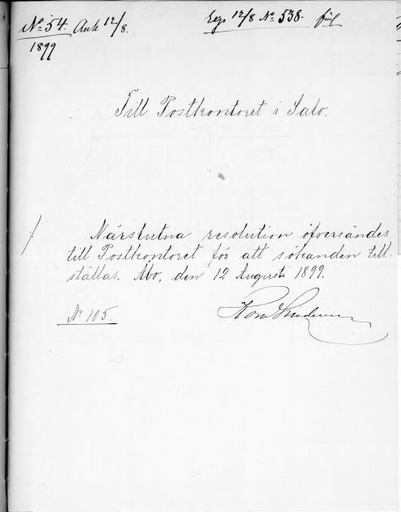 No 54. Ank 12/8.
1899
Exp 12/8 No 538.
Till Postkontoret i Salo.
Närslutna resolution öfversändes
till Postkontoret för att sökanden till-
ställas. Åbo, den 12 Augusti 1899.
No 105.